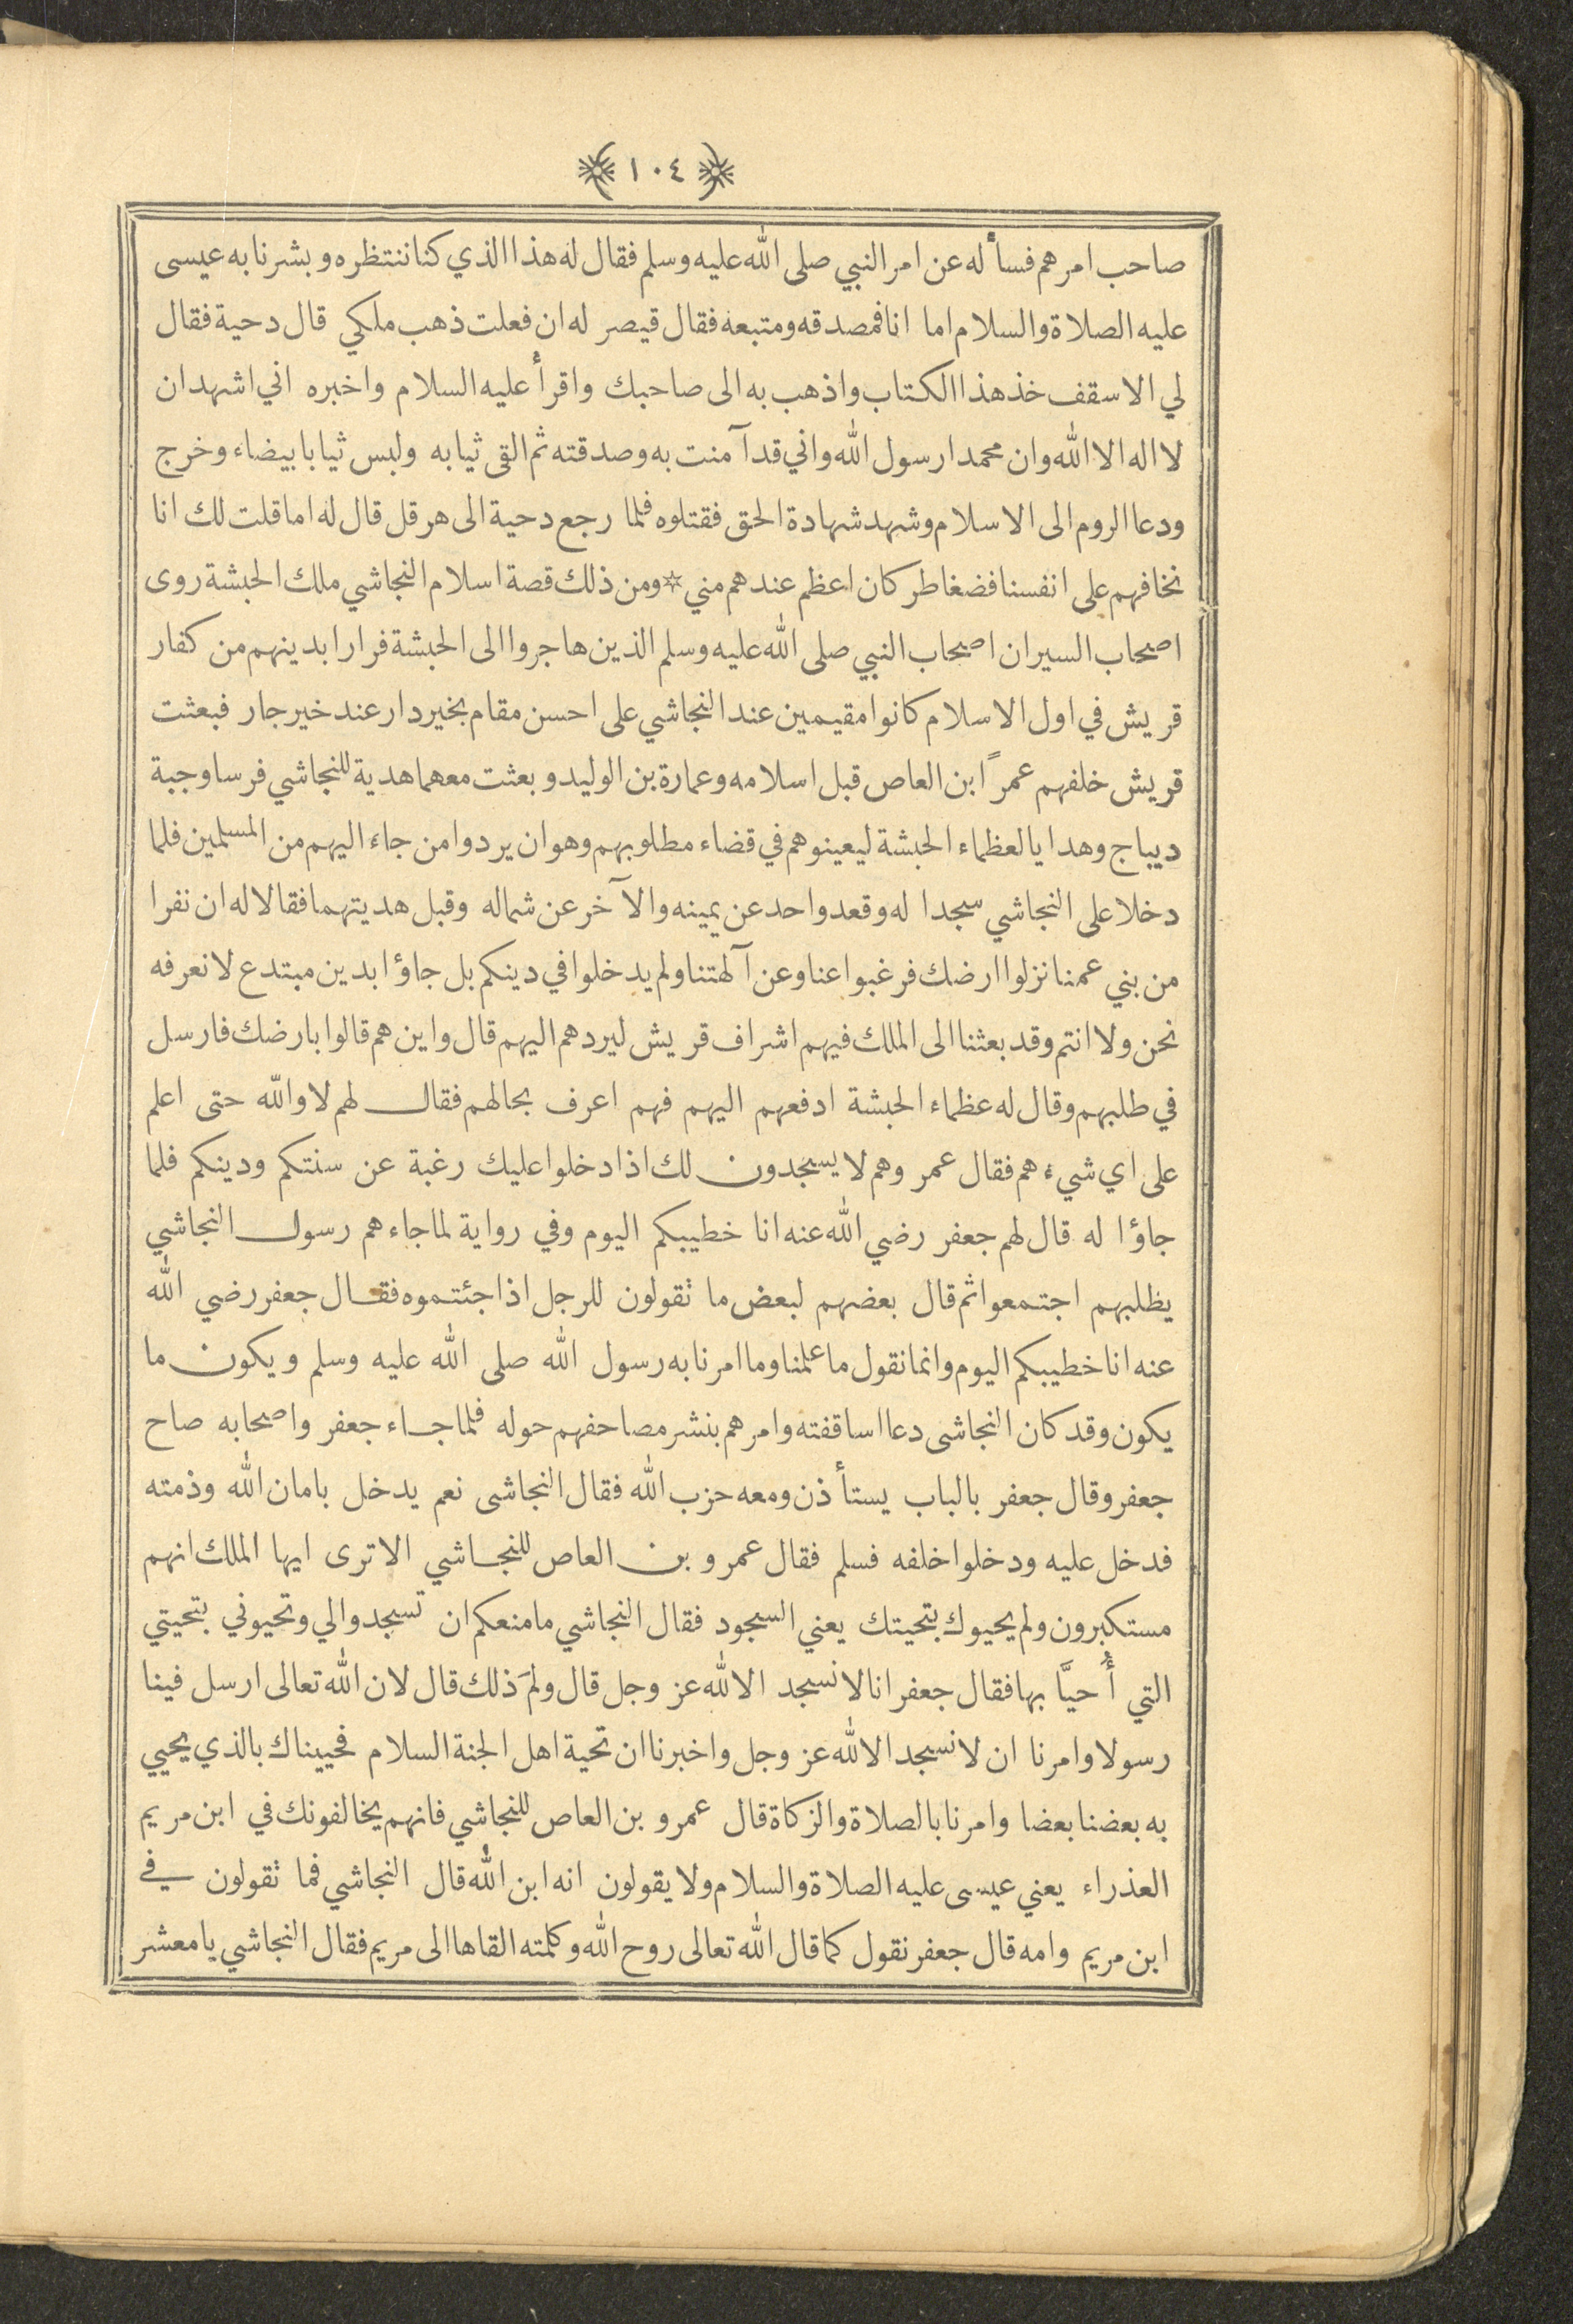 ١٠٤
صاحب امرهم فسأله عن امر النبي صلى الله عليه وسلم فقال له هذا الذي كنا ننتظره وبشرنا به عيسى
عليه الصلاة والسلام اما انا فمصدقه ومتبعه فقال قيصر له ان فعلت ذهب ملكي قال دحية فقال
لي الاسقف خذ هذا الكتاب واذهب به الى صاحبك واقرأ عليه السلام واخبره اني اشهد ان
لا اله الا الله وان محمدا رسول الله واني قد آمنت به وصدقته ثم القى ثيابه ولبس ثيابا بيضاء وخرج
ودعا الروم الى الاسلام وشهد شهادة الحق فقتلوه فلما رجع دحية الى هرقل قال له اما قلت لك انا
نخافهم على انفسنا فضغاطر كان اعظم عندهم مني ☆ ومن ذلك قصة اسلام النجاشي ملك الحبشة روى
اصحاب السير ان اصحاب النبي صلى الله عليه وسلم الذين هاجروا الى الحبشة فرارا بدينهم من كفار
قريش في اول الاسلام كانوا مقيمين عند النجاشي على احسن مقام بخير دار عند خير جار فبعثت
قريش خلفهم عمرًا بن العاص قبل اسلامه وعمارة بن الوليد وبعثت معهما هدية للنجاشي فرسا وجبة
ديباج وهدايا لعظماء الحبشة ليعينوهم في قضاء مطلوبهم وهو ان يردوا من جاء اليهم من المسلمين فلما
دخلا على النجاشي سجدا له وقعد واحد عن يمينه والآخر عن شماله وقبل هديتهما فقالا له ان نفرا
من بني عمنا نزلوا ارضك فرغبوا عنا وعن آلهتنا ولم يدخلوا في دينكم بل جاؤا بدين مبتدع لا نعرفه
نحن ولا انتم وقد بعثنا الى الملك فيهم اشراف قريش ليردهم اليهم قال واين هم قالوا بارضك فارسل
في طلبهم وقال له عظماء الحبشة ادفعهم اليهم فهم اعرف بحالهم فقال لهم لا والله حتى اعلم
على اي شيء هم فقال عمر وهم لا يسجدون لك اذا دخلوا عليك رغبة عن سنتكم ودينكم فلما
جاؤا له قال لهم جعفر رضي الله عنه انا خطيبكم اليوم وفي رواية لما جاءهم رسول النجاشي
يطلبهم اجتمعوا ثم قال بعضهم لبعض ما تقولون للرجل اذا جئتموه فقال جعفر رضي الله
عنه انا خطيبكم اليوم وانما نقول ما علمنا وما امرنا به رسول الله صلى الله عليه وسلم ويكون ما
يكون وقد كان النجاشى دعا اساقفته وامرهم بنشر مصاحفهم حوله فلما جاء جعفر واصحابه صاح
جعفر وقال جعفر بالباب يستأذن ومعه حزب الله فقال النجاشى نعم يدخل بامان الله وذمته
فدخل عليه ودخلوا خلفه فسلم فقال عمرو بن العاص للنجاشي الا ترى ايها الملك انهم
مستكبرون ولم يحيوك بتحيتك يعني السجود فقال النجاشي ما منعكم ان تسجدوا لي وتحيوني بتحيتي
التي أُحيَّا بها فقال جعفر انا لا نسجد الا لله عز وجل قال ولمَ ذلك قال لان الله تعالى ارسل فينا
رسولا وامرنا ان لا نسجد الا لله عز وجل واخبرنا ان تحية اهل الجنة السلام فحييناك بالذي يحيي
به بعضنا بعضا وامرنا بالصلاة والزكاة قال عمرو بن العاص للنجاشي فانهم يخالفونك في ابن مريم
العذراء يعني عيسى عليه الصلاة والسلام ولا يقولون انه ابن الله قال النجاشي فما تقولون في
ابن مريم وامه قال جعفر نقول كما قال الله تعالى روح الله وكلمته القاها الى مريم فقال النجاشي يا معشر